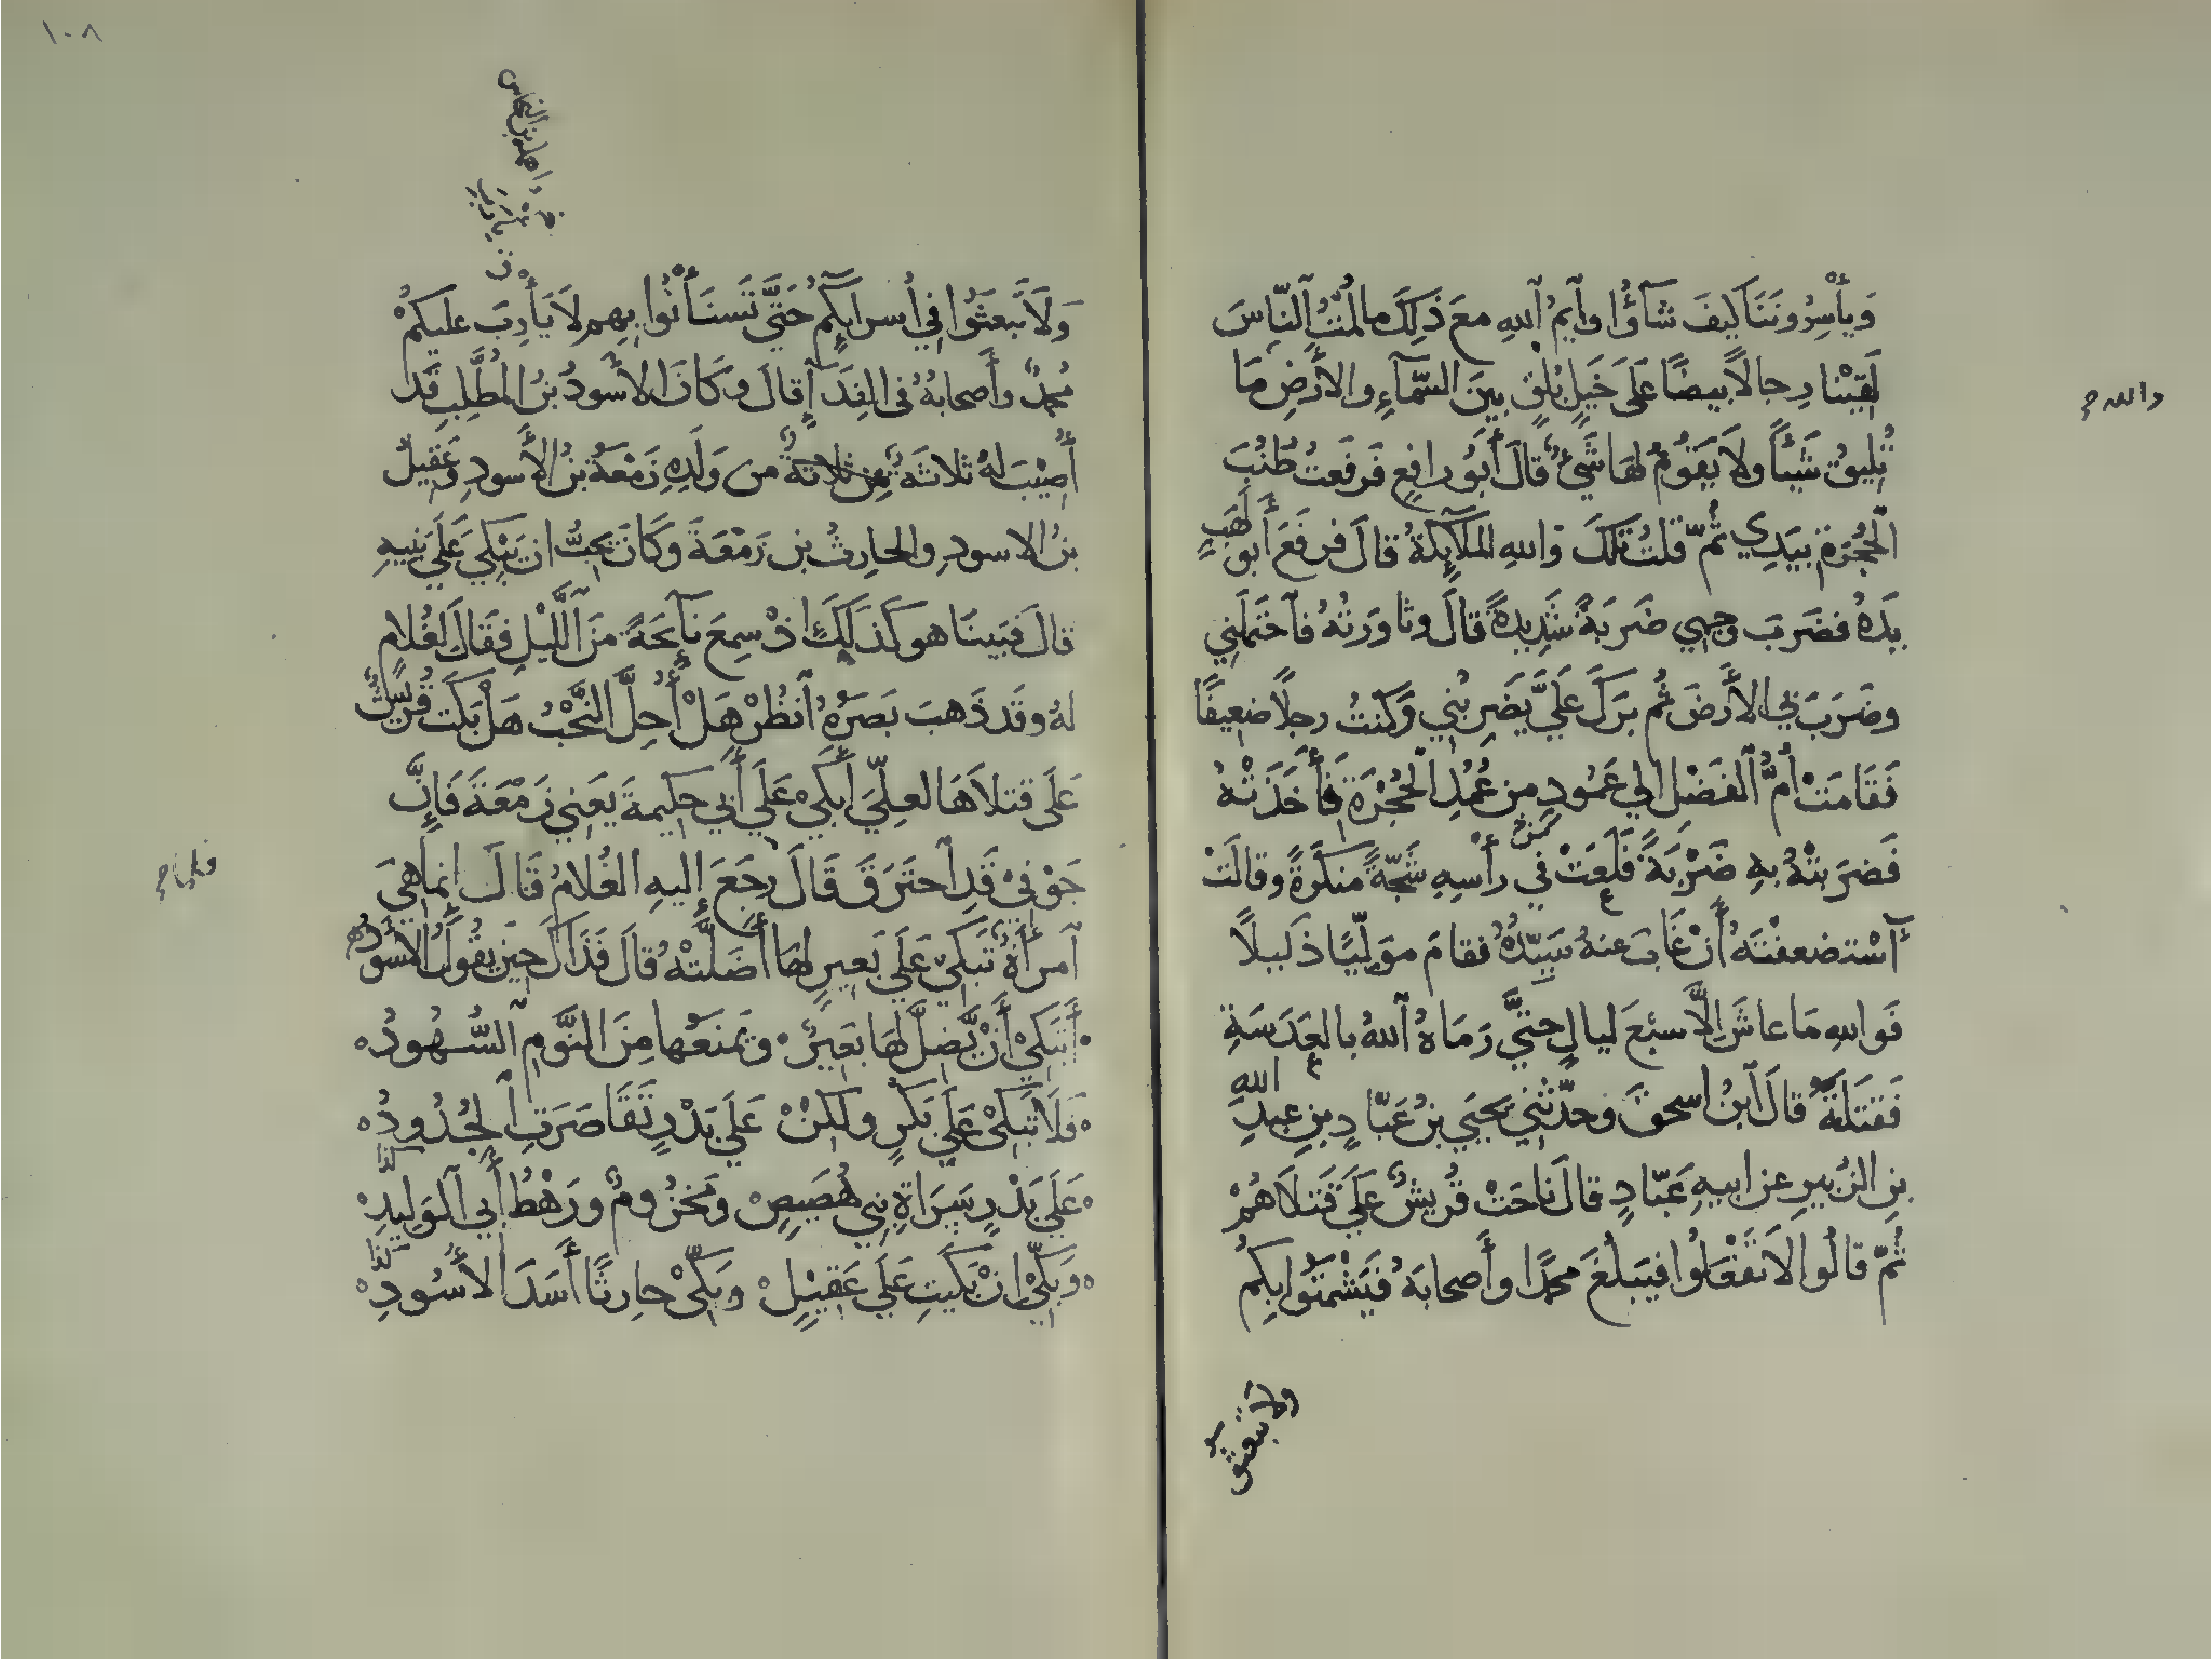 وَيَأْسِرُونَنَا كَيْفَ شَآؤُا وَٱيْمُ ٱللهِ معَ ذَلِكَ مالُمْتُ ٱلنّاسَ
لَقِيْنا رِجالاً بيضًا عَلَى خَيلٍ بُلْقٍ بينَ السَّمآءِ والأَرْضِ مَا
والله صح
تُلِيقُ شَيْئاً ولاَ يَقوُمُ لهَا شَيْءٌ قالَ أَبوُ رافعٍ فَرفعتُ طُنُبَ
ٱلْحُجْرَةِ بيَدِي ثُمّ قلتُ تلكَ وَاللهِ الملآئِكةُ قالَ فرفعَ أبو لَهَبٍ
يَدَهُ فضَربَ وجهي ضَربَةً شَدِيدةً قالَ وثاوَرتُهُ فٱحْتَمَلَنِي
وضَرَبَ بي الأَرْضَ ثُم بَرَكَ عَلَيَّ يَضرِبُنِي وَكنتُ رجلاً ضعِيفًا
فَقَامَتْ أُمُّ ٱلفَضْلِ الي عَمُودٍ من عُمُدِ ٱلحُجْرَةِ فَأَخَذَتْهُ
فَضرَبَتْهُ بهِ ضَرْبَةً فَلَعَتْ في رأْسِهِ شَجّةً منكَرةً وقالَتْ
ٱسْتضعفْتَهُ أَنْ غَابَ عنهُ سَيِّدُهُ فقامَ موَلِّيًا ذَليلاً
فَواللهِ مَا عاشَ إِلاَّ سبْعَ ليالٍ حتيَّ رَمَاهُ ٱللهُ بالعَدَسَةِ
فَقتَلَتهُ قالَ ٱبنُ اسحقَ وحدّثَنِي يحيَي بنُ عَبّادِ بنِ عبدِ اللهِ
بنِ الزُبيرِ عن ابيهِ عَبّادٍ قالَ ناحَتْ قُريشٌ عَلَي قَتلاَهُمْ
ثُمّ قالُوا لاَ تفْعَلُوا فيَبلُغَ محمّدًا وأَصحابَهُ فَيَشْمَتوُا بِكمُ
ولا تبعثوا
١٠٨
وَلاَ تَبعَثوُا في أُسرآئِكُمْ حَتَّي تَستَأْنُوا بِهِم لاَ يَأْرِبَ عليكمْ
مُحمدٌ وأَصحابهُ في الفِدَآءِ قالَ وكَانَ الأَسودُ بنُ المُطَّلِبِ قَد
أُصِيْبَ لهُ ثلاثَةٌ من ثلاثةٌ من وَلَدِهِ زَمْعَةُ بنُ الأَسودِ وعَقِيلُ
بنُ الاسودِ والحارِثُ بن زَمْعَةَ وكَانَ يحِبُّ ان يَبْكِيَ عَلَي بَنِيهِ
قالَ فبَينَا هو كَذَلِكَ اذْ سمِعَ نآئِحَةً منَ ٱللَّيْلِ فقَالَ لغُلامٍ
لهُ وقَد ذَهبَ بَصَرُهُ ٱنظُرْ هَلْ أُحِلَّ النَّحْبُ هَلْ بَكَت قُريشٌ
عَلَى قتلاَهَا لعلِّيَ أَبكيْ عَلَي أَبي حكِيمةَ يَعني زَمْعَةَ فَإِنَّ
جَوْفِيْ قَدِ ٱحتَرَقَ قَالَ رجَعَ إِليهِ الغُلامُ قَالَ إِنماهيَ
فلما صح
ٱمرأَةٌ تَبكيْ عَلَي بَعيرٍ لهَا أَضَلَّتْهُ قالَ فَذَاكَ حِينَ يقُولُ الأَسْوَدُ
أَتَبكيْ أَنْ يَّضِلَّ لهَا بَعِيرٌ وَيَمنَعُها مِنَ النَّومِ ٱلسُّهُودُ
فَلاَ تَبكيْ عَلَي بَكرٍ ولكنْ عَلَي بَدْرٍ تَقَاصَرَتِ ٱلجُدُودُ
عَلَي بَدْرٍ سَرَاةِ بَنِي هُصَيصٍ وَمَخزُومٍ ورَهْطُ أَبي ٱلوَلِيدِ
وَبَكِّيْ انْ بَكَيتِ عَلَي عَقِيْلٍ وبَكِّيْ حارِثًا أَسَدَ الأُسُودِ